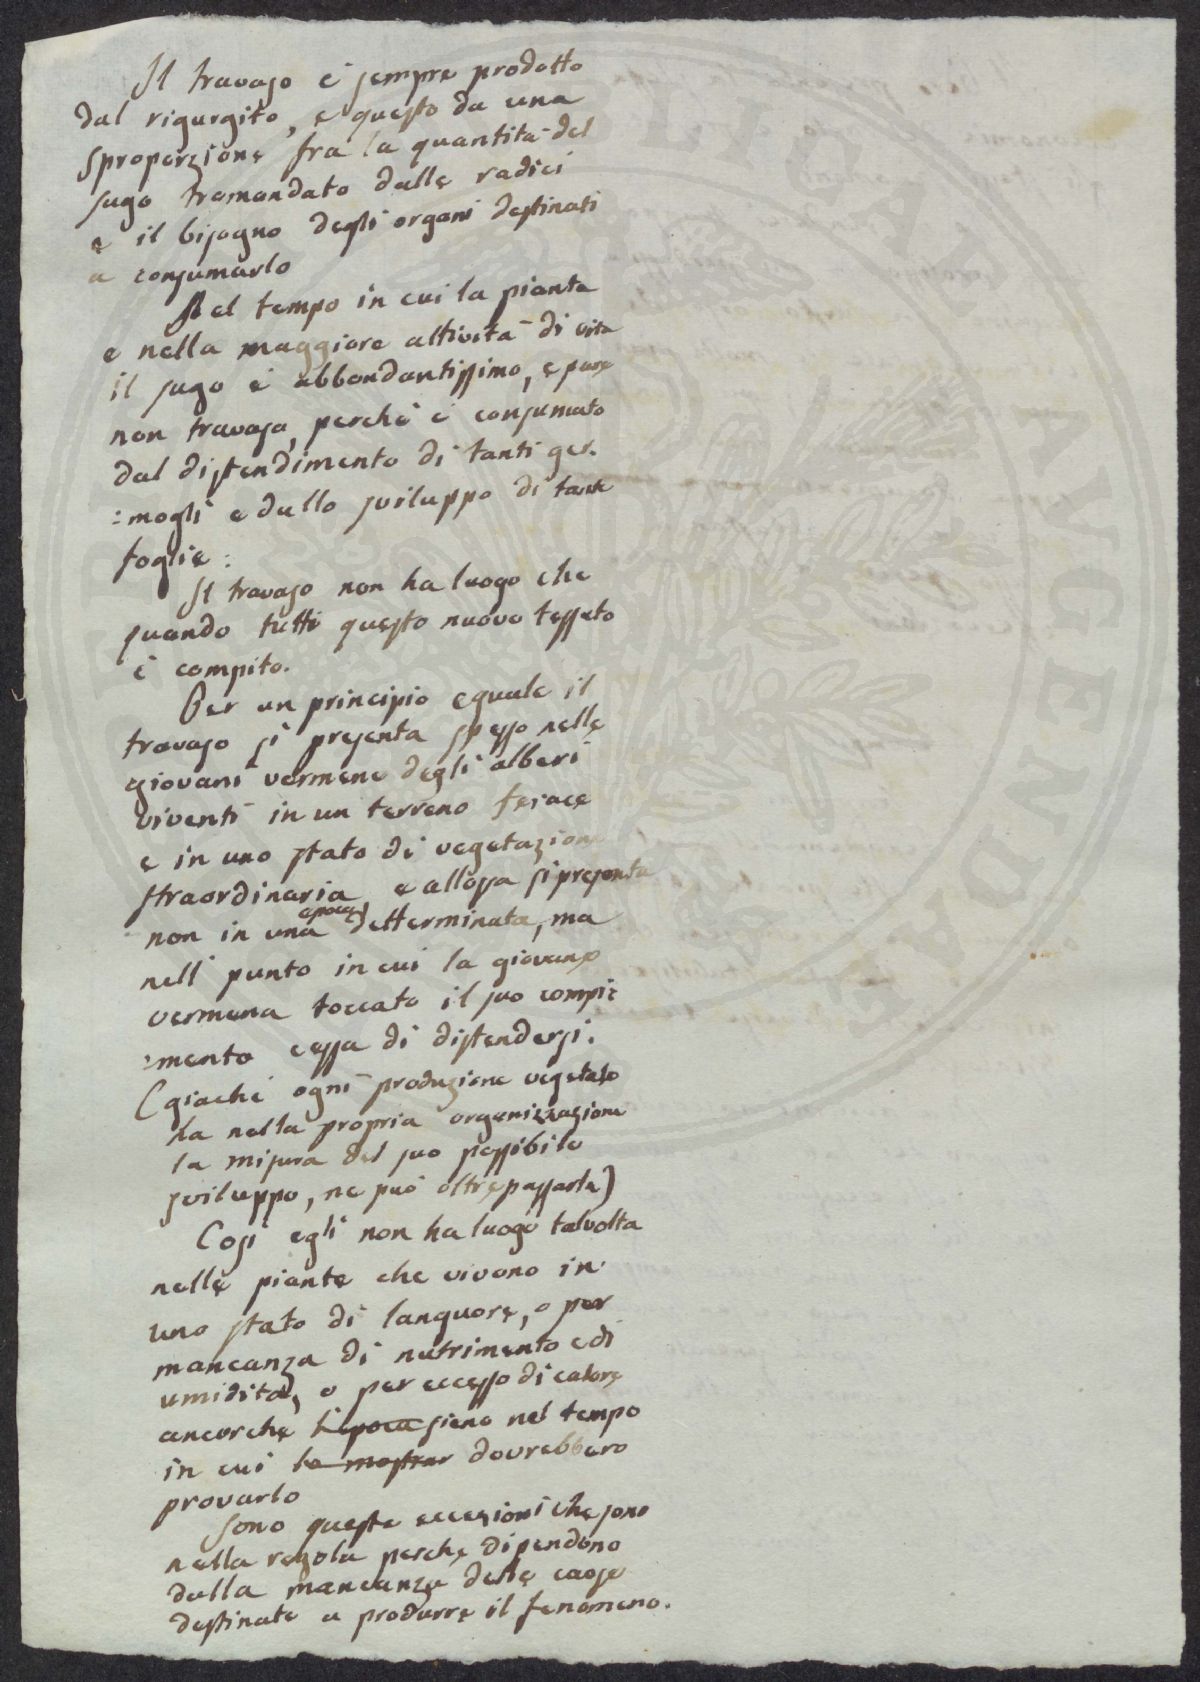 Il travaso è sempre prodotto
dal rigurgito, e questo da una
sproporzione fra la quantità del
sugo tramandato dalle radici
e il bisogno degli organi destinati
a consumarlo
Nel tempo in cui la pianta
e nella maggiore attività di vita
il sugo è abbondantissimo, e pure
non travasa, perchè è consumato
dal distendimento di tanti ger-
:mogli e dallo sviluppo di tante
foglie:
Il travaso non ha luogo che
quando tutti questo nuovo tessuto
è compito.
Per un principio eguale il
travaso si presenta spesso nelle
giovani vermene degli alberi
viventi in un terreno ferace
e in uno stato di vegetazione
straordinaria e allora si presenta
non in una epoca detterminata, ma
nell punto in cui la giovane
vermena toccato il suo compi:
:mento cessa di distendersi.
(giachè ogni produzione vegetale
ha nella propria organizzazione
la misura del suo possibile
sviluppo, ne può oltrepassarla)
Così egli non ha luogo talvolta
nelle piante che vivono in
uno stato di languore, o per
mancanza di nutrimento e di
umidità, o per eccesso di calore
ancorche sieno nel tempo
in cui lo mostrar dovrebbero
provarlo
Sono queste eccezioni che sono
nella regola perche dipendono
dalla mancanza delle cause
destinate a produrre il fenomeno.